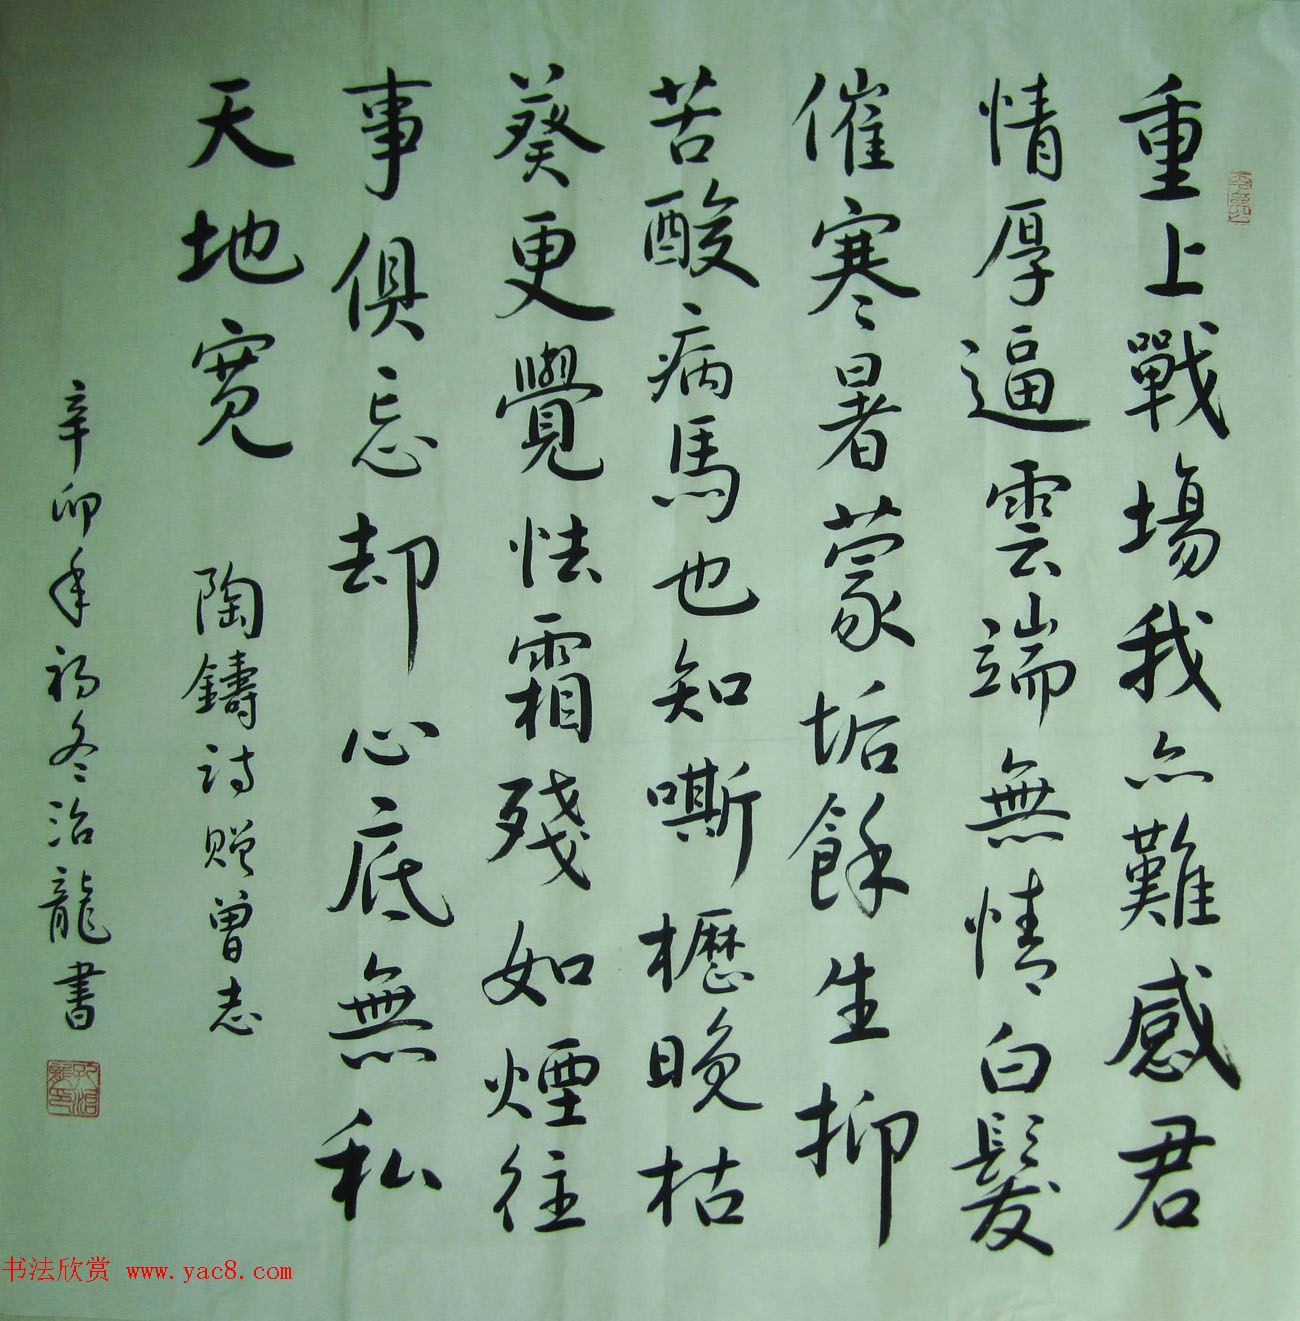 重上戰場我亦難感君
情厚逼雲端無情白髮
催寒暑蒙垢餘生抑
苦酸病馬也知嘶櫪晚枯
葵更覺怯霜殘如煙往
事俱忘却心底無私
天地寬
陶鑄诗赠曾志
辛卯年初冬治龍書
书法欣赏 www.yac8.com